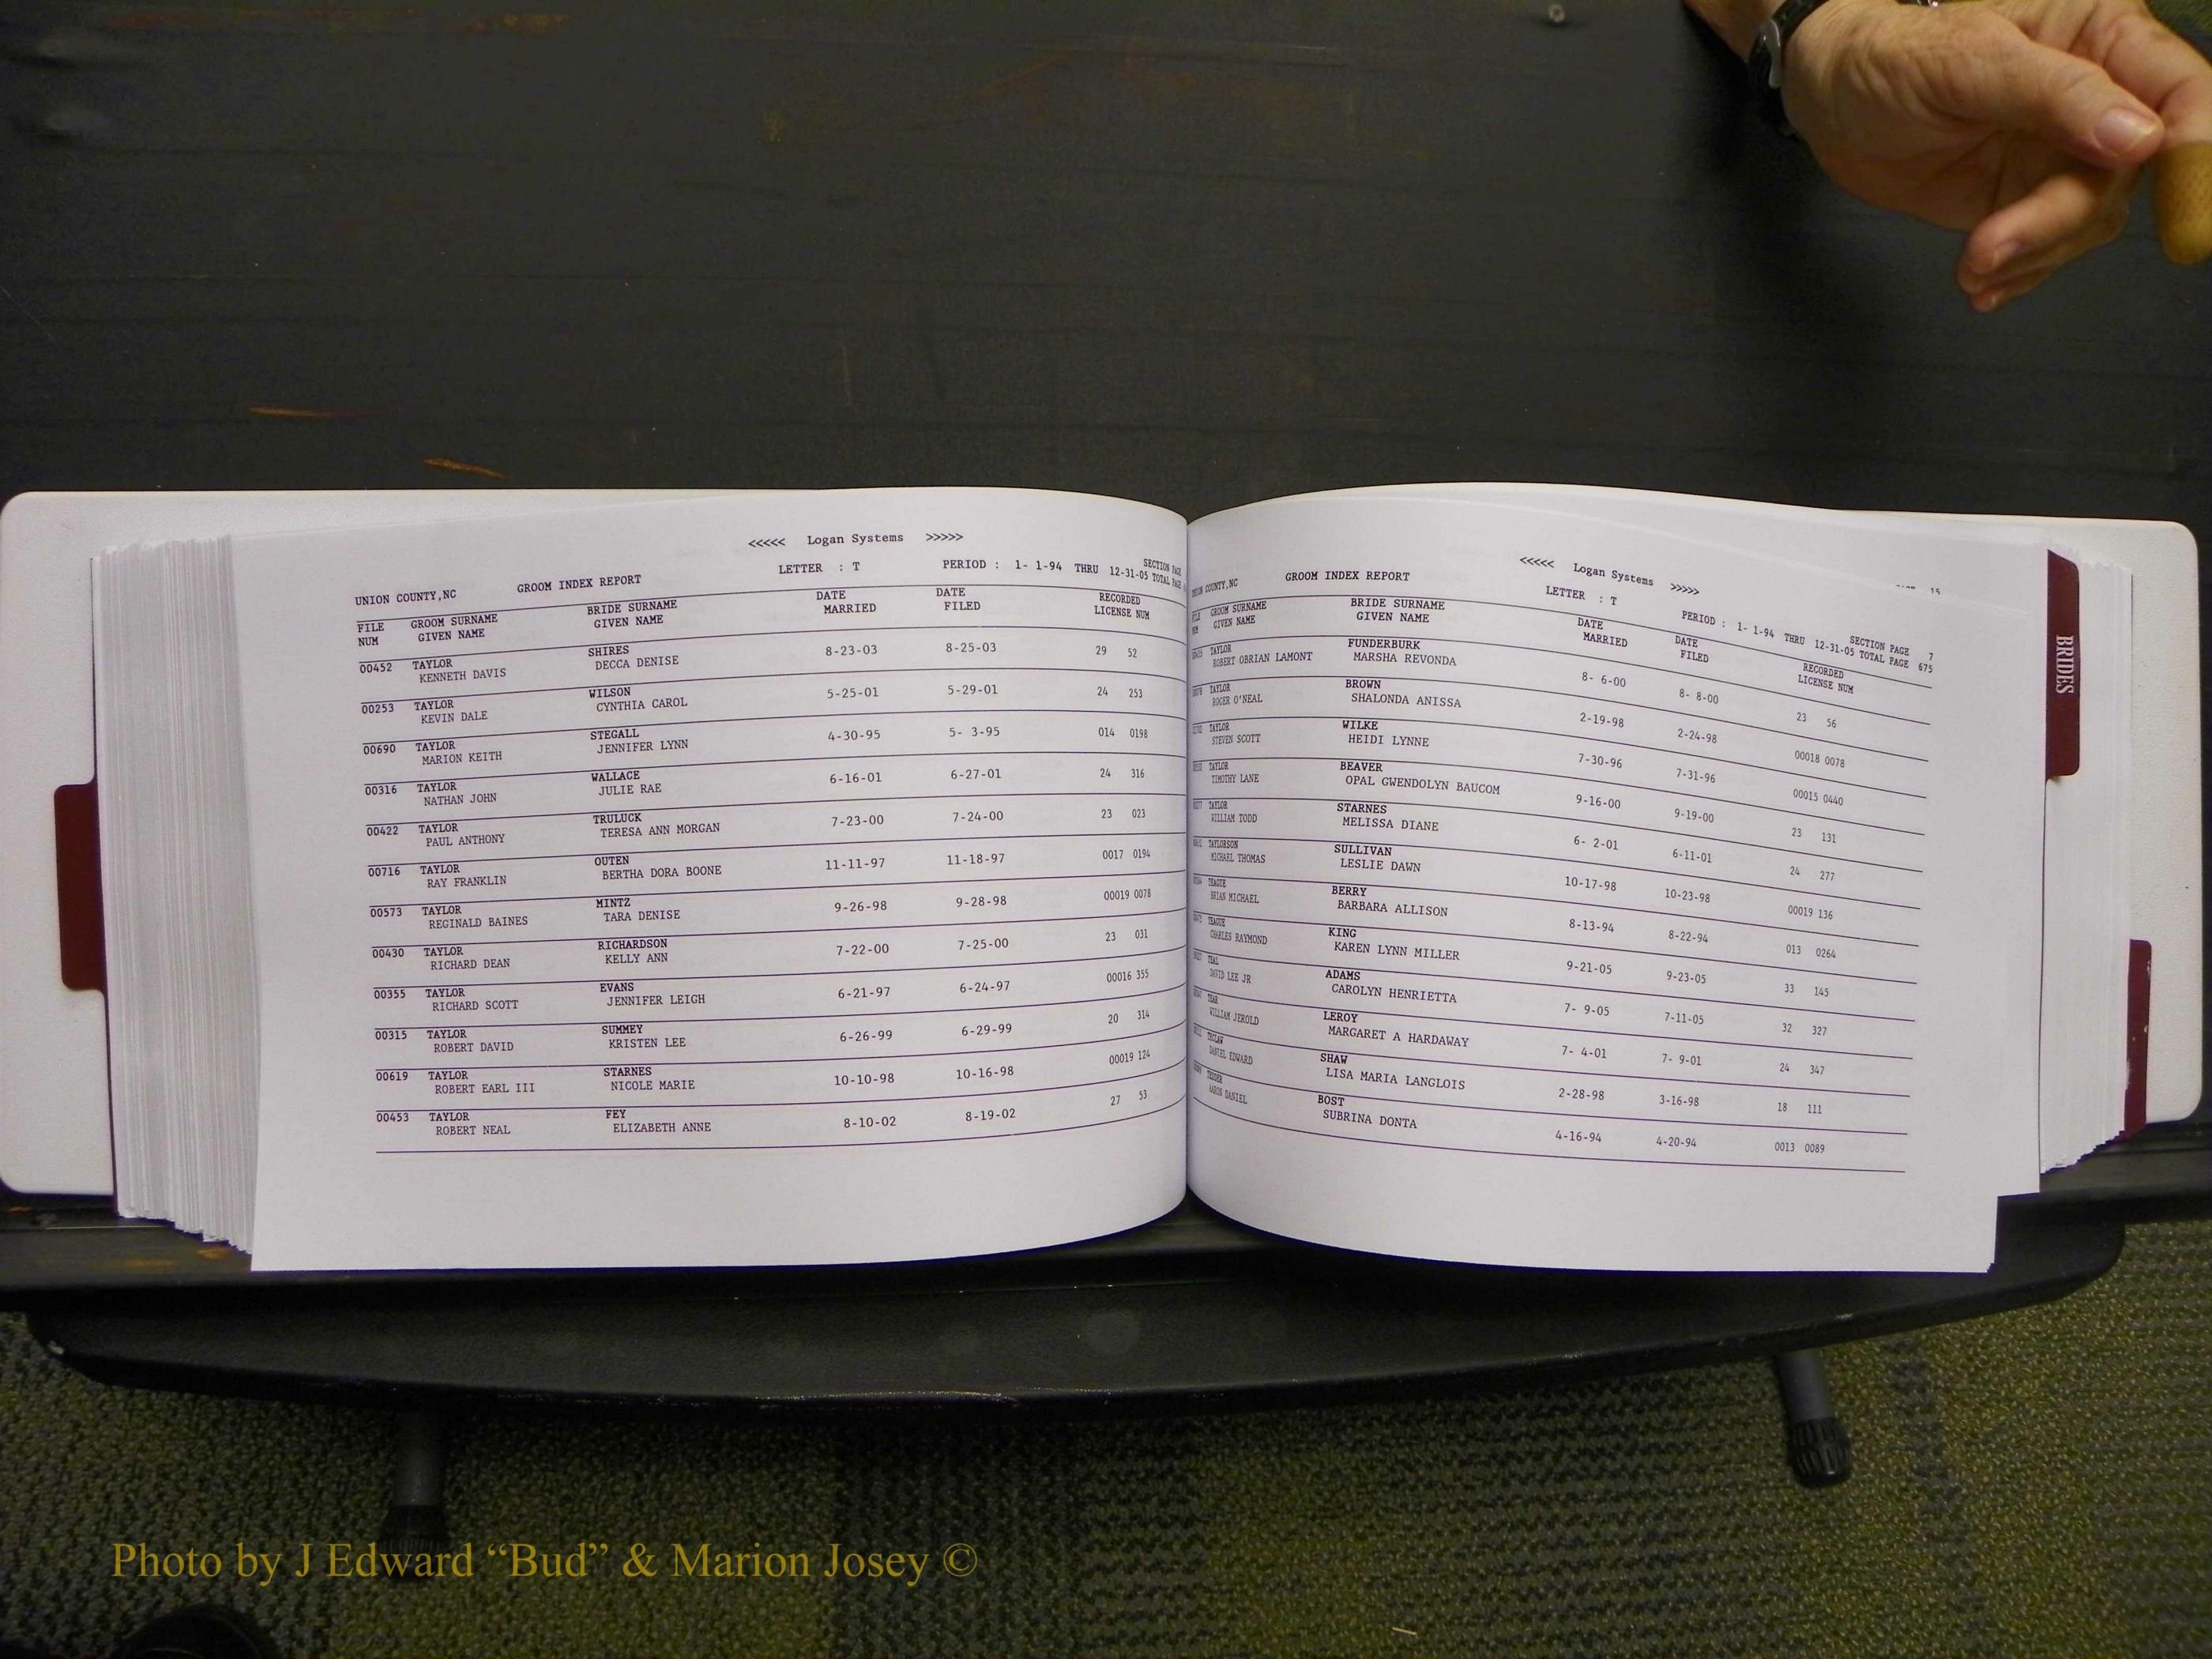 <<<<< Logan Systems >>>>>
UNION COUNTY,NC GROOM INDEX REPORT LETTER : T PERIOD : 1- 1-94 THRU 12-31-05 SECTION PAGE
TOTAL PAGE
FILE GROOM SURNAME BRIDE SURNAME DATE DATE RECORDED
NUM GIVEN NAME GIVEN NAME MARRIED FILED LICENSE NUM
00452 TAYLOR SHIRES 8-23-03 8-25-03 29 52
KENNETH DAVIS DECCA DENISE
00253 TAYLOR WILSON 5-25-01 5-29-01 24 253
KEVIN DALE CYNTHIA CAROL
00690 TAYLOR STEGALL 4-30-95 5- 3-95 014 0198
MARION KEITH JENNIFER LYNN
00316 TAYLOR WALLACE 6-16-01 6-27-01 24 316
NATHAN JOHN JULIE RAE
00422 TAYLOR TRULUCK 7-23-00 7-24-00 23 023
PAUL ANTHONY TERESA ANN MORGAN
00716 TAYLOR OUTEN 11-11-97 11-18-97 0017 0194
RAY FRANKLIN BERTHA DORA BOONE
00573 TAYLOR MINTZ 9-26-98 9-28-98 00019 0078
REGINALD BAINES TARA DENISE
00430 TAYLOR RICHARDSON 7-22-00 7-25-00 23 031
RICHARD DEAN KELLY ANN
00355 TAYLOR EVANS 6-21-97 6-24-97 00016 355
RICHARD SCOTT JENNIFER LEIGH
00315 TAYLOR SUMMEY 6-26-99 6-29-99 20 314
ROBERT DAVID KRISTEN LEE
00619 TAYLOR STARNES 10-10-98 10-16-98 00019 124
ROBERT EARL III NICOLE MARIE
00453 TAYLOR FEY 8-10-02 8-19-02 27 53
ROBERT NEAL ELIZABETH ANNE
<<<<< Logan Systems >>>>>
UNION COUNTY,NC GROOM INDEX REPORT LETTER : T PERIOD : 1- 1-94 THRU 12-31-05 SECTION PAGE 7
TOTAL PAGE 675
GROOM SURNAME BRIDE SURNAME DATE DATE RECORDED
GIVEN NAME GIVEN NAME MARRIED FILED LICENSE NUM
TAYLOR FUNDERBURK 8- 6-00 8- 8-00 23 56
ROBERT OBRIAN LAMONT MARSHA REVONDA
TAYLOR BROWN 2-19-98 2-24-98 00018 0078
ROGER O'NEAL SHALONDA ANISSA
TAYLOR WILKE 7-30-96 7-31-96 00015 0440
STEVEN SCOTT HEIDI LYNNE
TAYLOR BEAVER 9-16-00 9-19-00 23 131
TIMOTHY LANE OPAL GWENDOLYN BAUCOM
TAYLOR STARNES 6- 2-01 6-11-01 24 277
WILLIAM TODD MELISSA DIANE
TAYLORSON SULLIVAN 10-17-98 10-23-98 00019 136
MICHAEL THOMAS LESLIE DAWN
TEAGUE BERRY 8-13-94 8-22-94 013 0264
BRIAN MICHAEL BARBARA ALLISON
TEAGUE KING 9-21-05 9-23-05 33 145
CHARLES RAYMOND KAREN LYNN MILLER
TEAL ADAMS 7- 9-05 7-11-05 32 327
DAVID LEE JR CAROLYN HENRIETTA
TEAR LEROY 7- 4-01 7- 9-01 24 347
WILLIAM JEROLD MARGARET A HARDAWAY
TECLAW SHAW 2-28-98 3-16-98 18 111
DANIEL EDWARD LISA MARIA LANGLOIS
TEDDER BOST 4-16-94 4-20-94 0013 0089
AARON DANIEL SUBRINA DONTA
15
BRIDES
Photo by J Edward “Bud” & Marion Josey ©